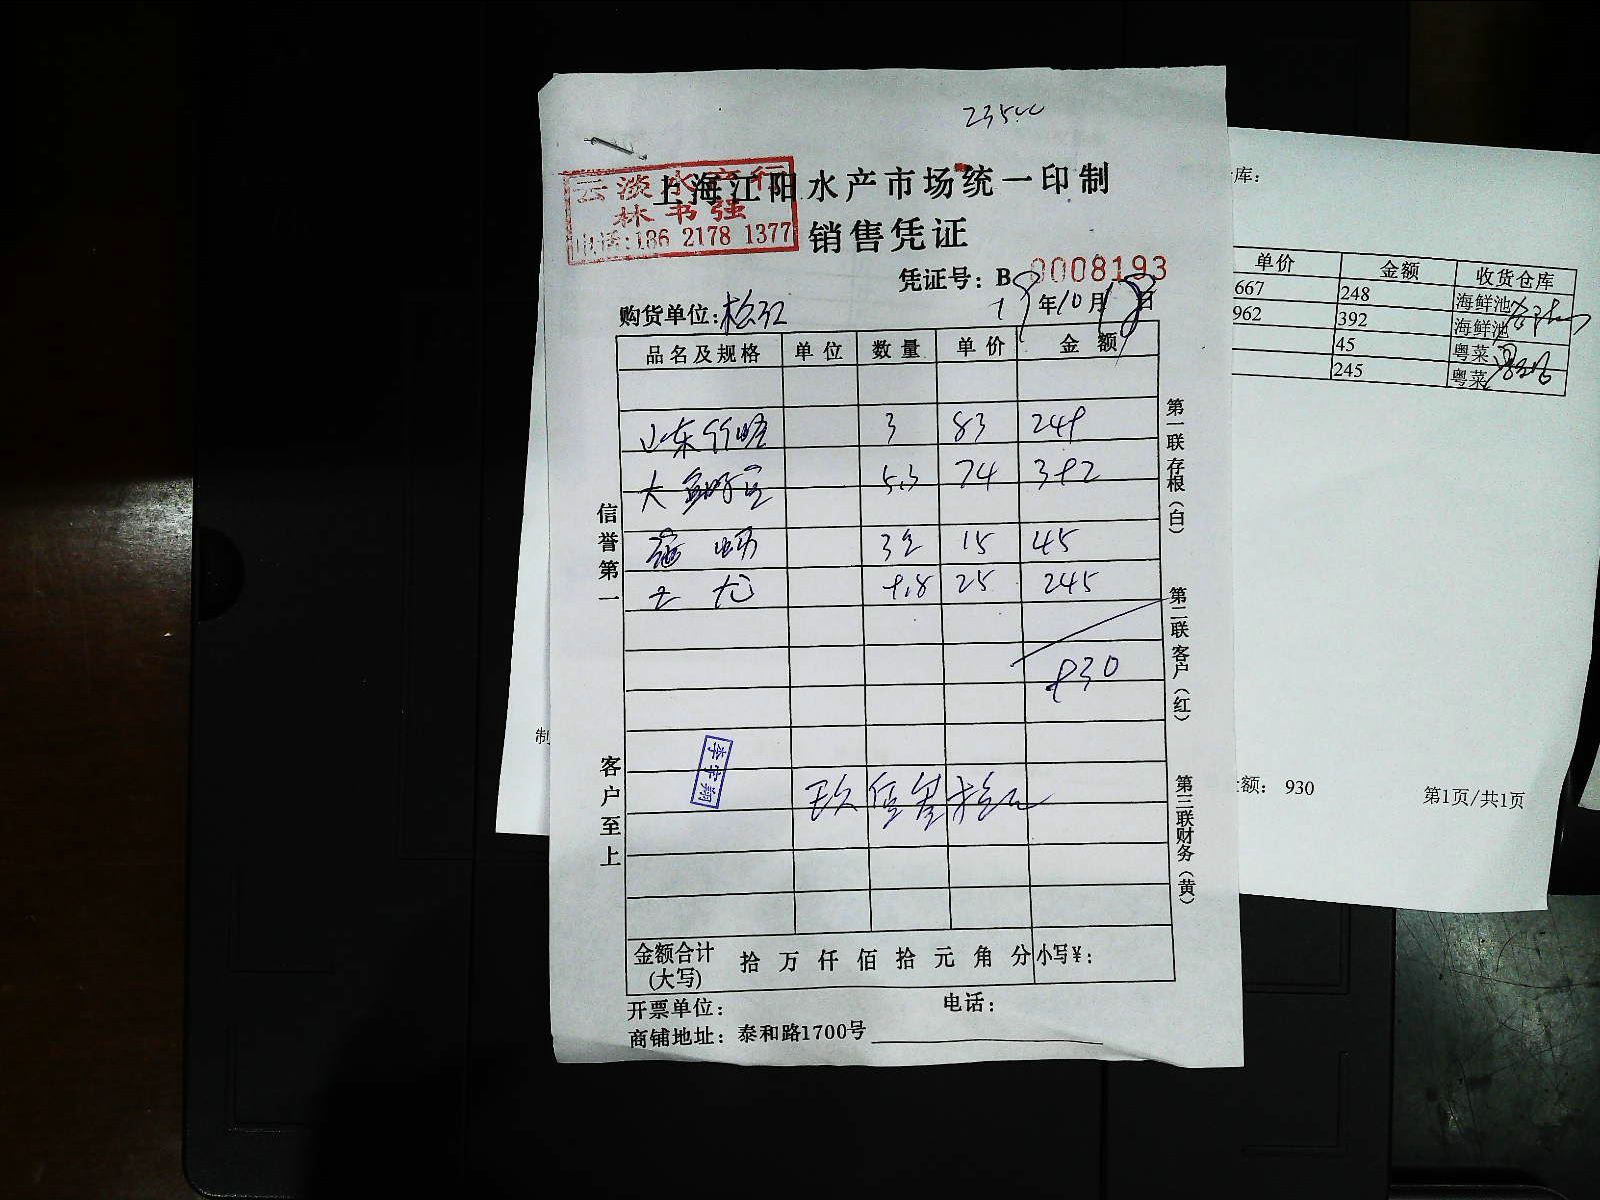 235
云淡水产行
林书强
电话:186 2178 1377
上海江阳水产市场统一印制
销售凭证
凭证号：B 0008193
购货单位:松江
19年10月18日
品名及规格 单位 数量 单价 金额
山东竹蛏 3 83 249
大鲍 5.3 74 392
3 15 45
9.8 25 245
930
玖佰叁拾元
李宇翔
金额合计(大写) 拾 万 仟 佰 拾 元 角 分 小写¥:
开票单位: 电话:
商铺地址: 泰和路1700号
信誉第一 客户至上
第一联 存根（白） 第二联 客户（红） 第三联 财务（黄）
库:
单价 金额 收货仓库
667 248 海鲜池
962 392 海鲜池
45 粤菜
245 粤菜
制
额: 930 第1页/共1页